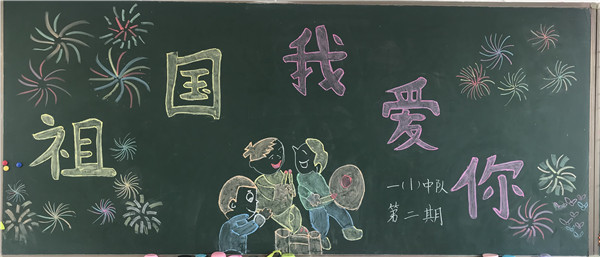 祖国我爱你
一(1)中队
第二期